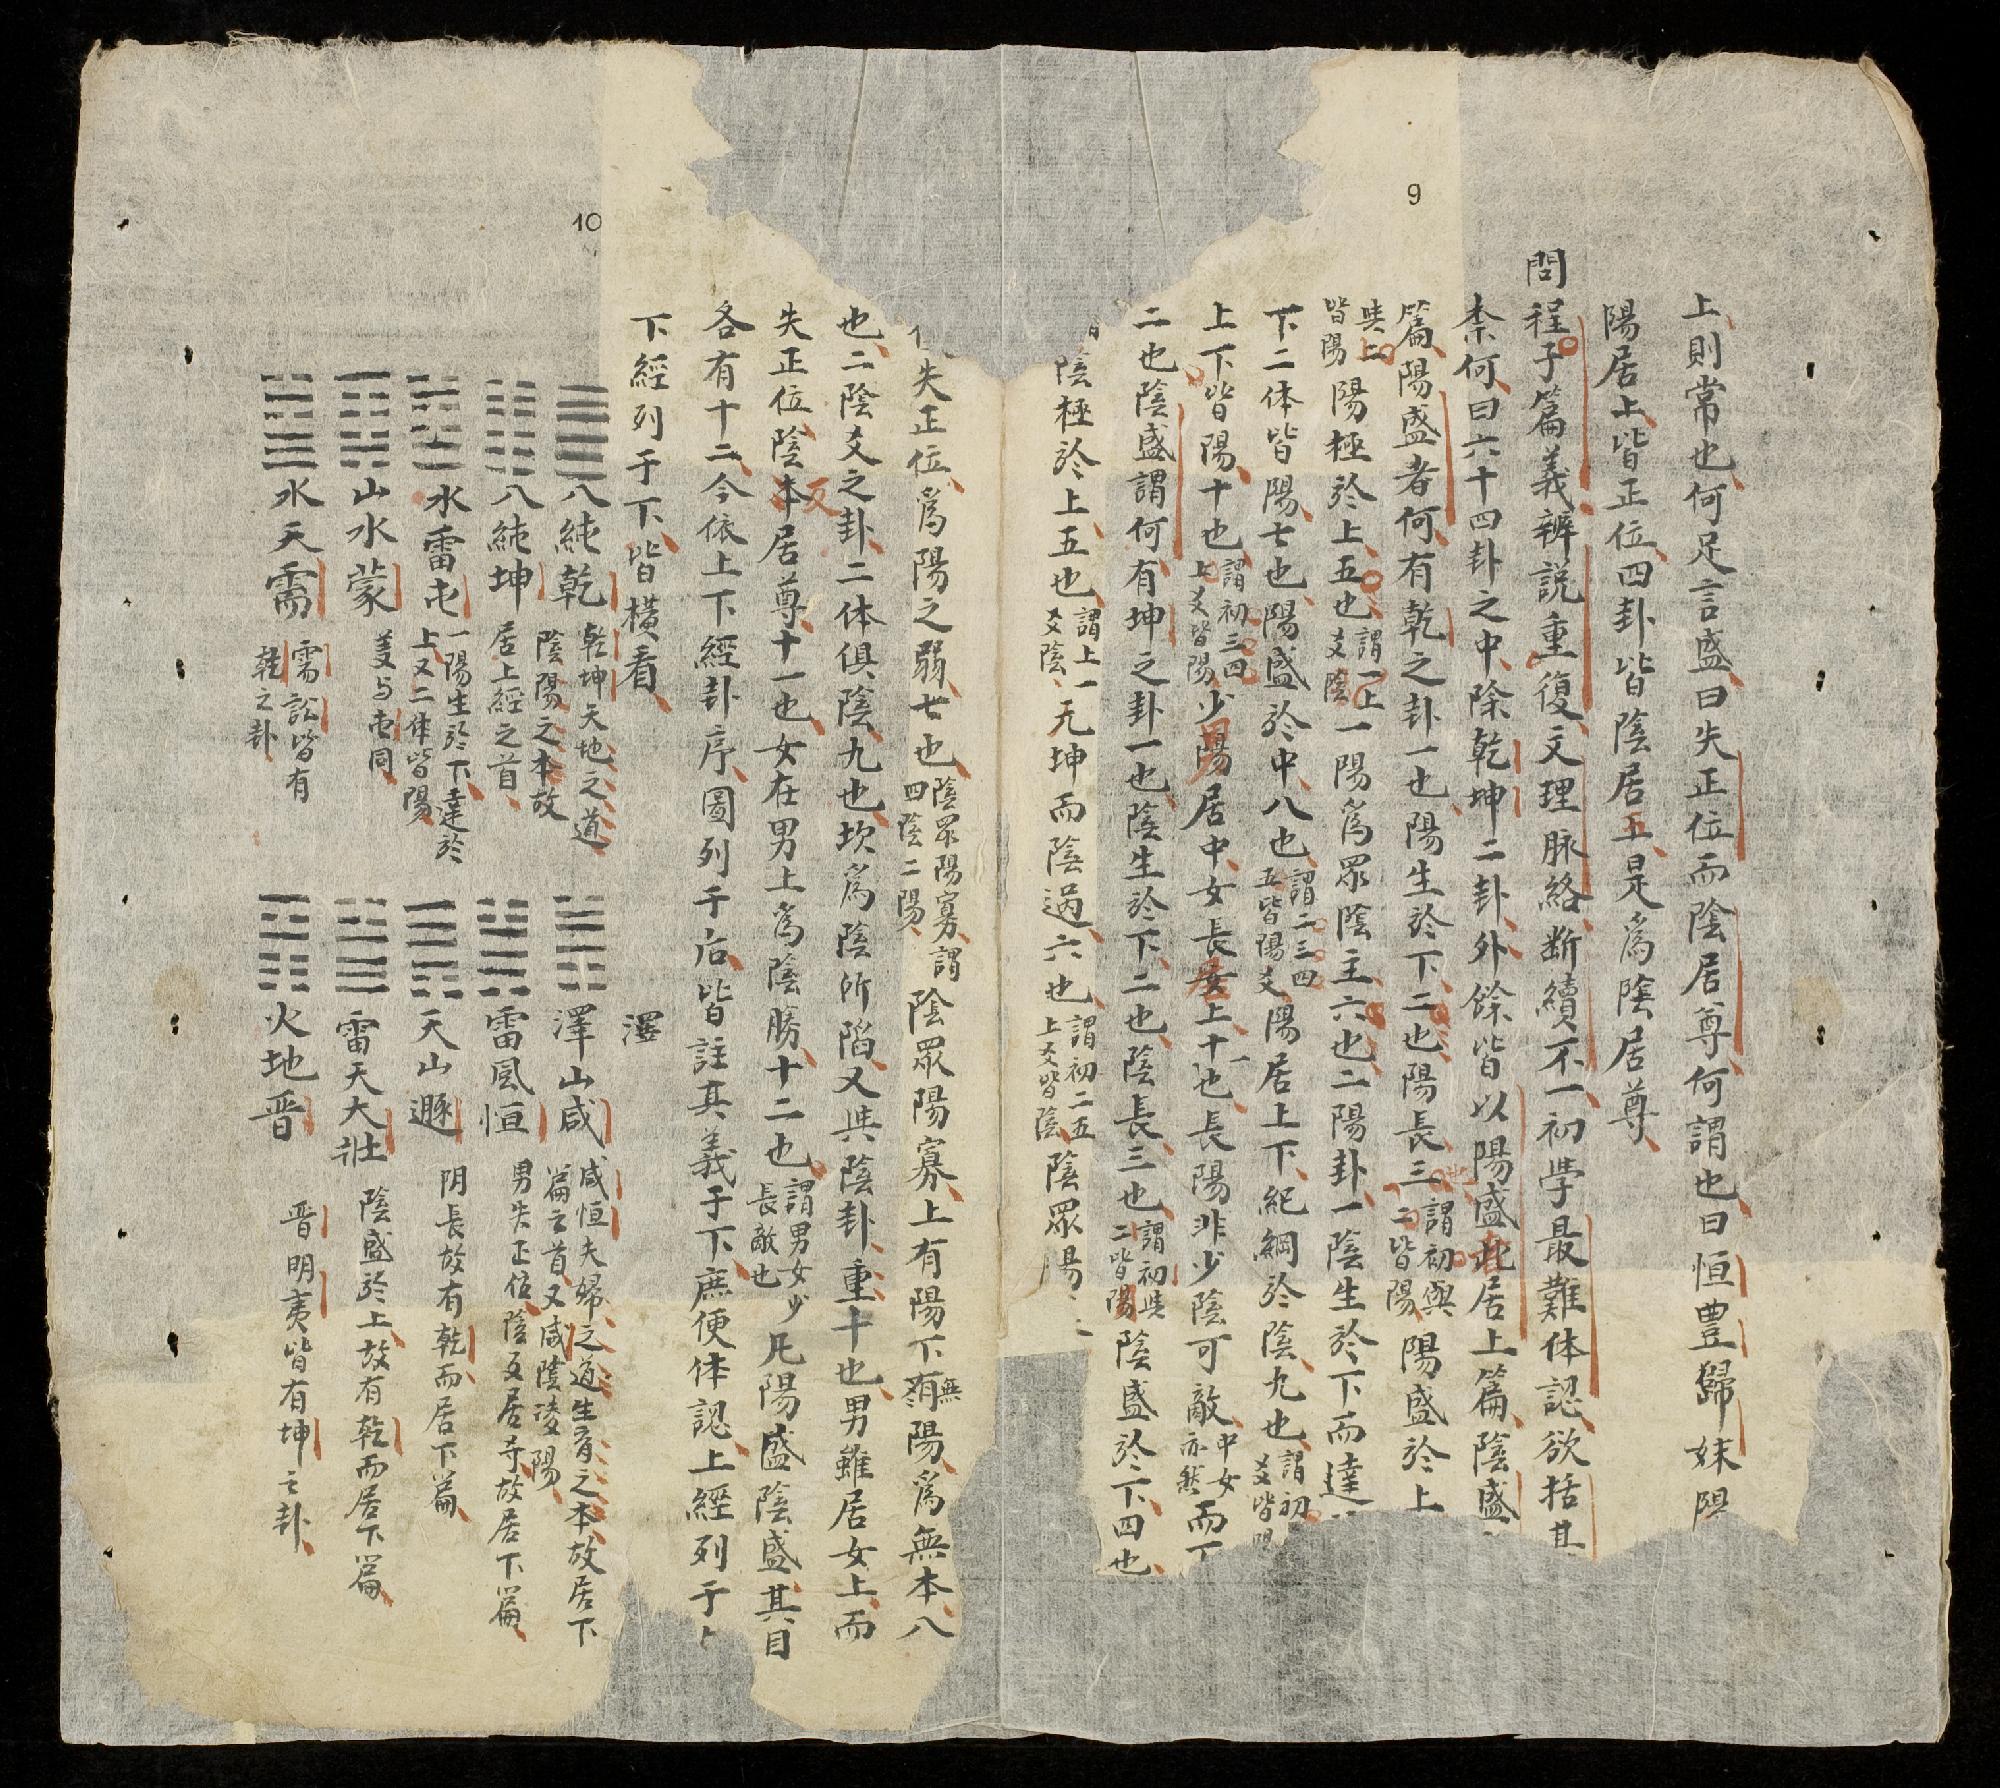 9
上則常也何足言盛曰失正位而陰居尊何謂也曰恒豊歸妹
陽居上皆正位四卦皆陰居五是為陰居尊
問程子篇義辨説重復文理脉絡断續不一初學最難体認欲括其
柰何曰六十四卦之中除乾坤二卦外餘皆以陽盛居上篇陰盛
篇陽盛者何有乾之卦一也陽生於下二也陽長三也謂初與二皆陽陽盛於上
與上皆陽陽極於上五也謂一上爻陰一陽爲眾陰主六也二陽卦一陰生於下而達
下二体皆陽七也陽盛於中八也謂二三四五皆陽爻陽居上下紀綱於陰九也謂初爻皆
上下皆陽十也謂初三四上爻皆陽少陽居中女長女上十一也長陽非少陰可敵中女亦然而
二也陰盛謂何有坤之卦一也陰生於下二也陰長三也謂初與二皆陽陰盛於下四也
陰極於上五也謂上一爻陰无坤而陰過六也謂初二五上爻皆陰陰眾陽
10
失正位爲陽之弱七也陰眾陽寡謂四陰二陽陰眾陽寡上有陽下無陽爲無本八
也二陰爻之卦二体俱陰九也坎爲陰所陷又與陰卦重十也男雖居女上而
失正位陰反居尊十一也女在男上爲陰勝十二也謂男女少長敵也凡陽盛陰盛其目
各有十二今依上下經卦序圖列于后皆註其義于下庶便体認上經列于
下經列于下皆横看
澤
八純乾 乾坤天地之道陰陽之本故
八純坤 居上經之首
水雷屯 一陽生於下達於上又二体皆陽
山水蒙 蒙与屯同
水天需 需訟皆有乾之卦
澤山咸 咸恒夫婦之道生育之本故居下篇之首又咸陰凌陽
雷風恒 男失正位陰反居尊故居下篇
天山遯 阴長故有乾而居下篇
雷天大壯 陰盛於上故有乾而居下篇
火地晋 晋明夷皆有坤之卦